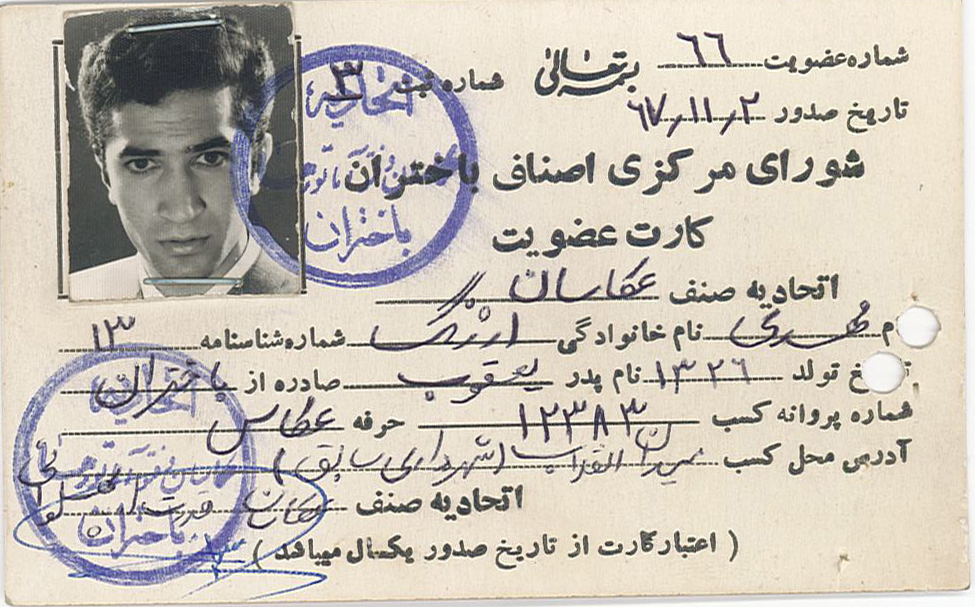 شماره عضویت ۶۶
بسمه تعالی
شماره ثبت ۳
تاریخ صدور ۶۷/۱۱/۲
شورای مرکزی اصناف باختران
کارت عضویت
اتحادیه صنف عکاسان
م مهدی نام خانوادگی ارژنگ شماره شناسنامه ۱۳
خ تولد ۱۳۲۶ نام پدر یعقوب صادره از باختران
شماره پروانه کسب ۱۲۳۸۳ حرفه عکاس
آدرس محل کسب میدان انقلاب (شهرداری سابق)
اتحادیه صنف عکاسان
(اعتبار کارت از تاریخ صدور یکسال میباشد)
اتحادیه
باختران
اتحادیه
باختران